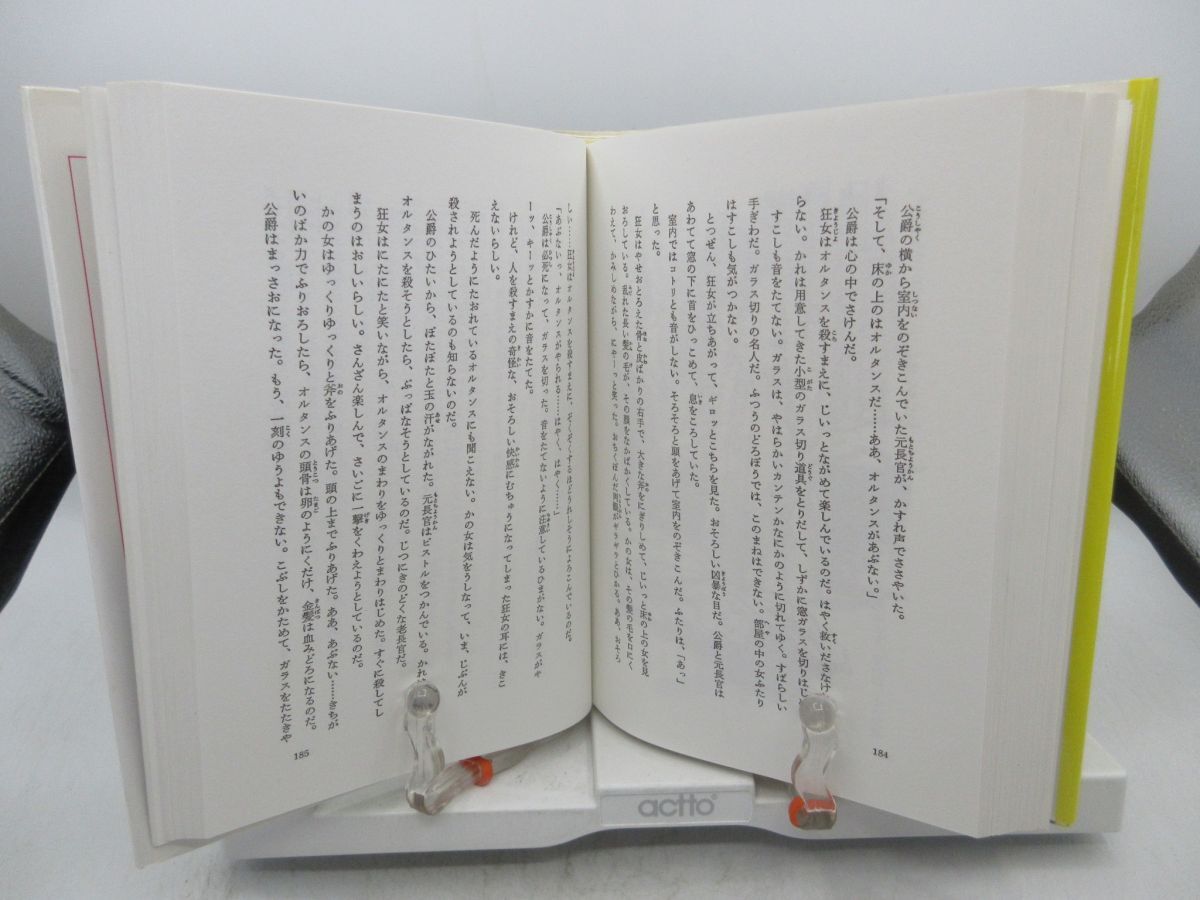 公爵の横から室内をのぞきこんでいた元長官が、かすれ声でささやいた。
「そして、床の上のはオルタンスだ……ああ、オルタンスがあぶない。」
公爵は心の中でさけんだ。
狂女はオルタンスを殺すまえに、じいっとながめて楽しんでいるのだ。はやく救いださなけ
らない。かれは用意してきた小型のガラス切り道具をとりだして、しずかに窓ガラスを切りはじ
すこしも音をたてない。ガラスは、やはらかいカンテンかなにかのように切れてゆく。すばらしい
手ぎわだ。ガラス切りの名人だ。ふつうのどろぼうでは、このまねはできない。部屋の中の女ふたり
はすこしも気がつかない。
とつぜん、狂女が立ちあがって、ギロッとこちらを見た。おそろしい凶暴な目だ。公爵と元長官は
あわてて窓の下に首をひっこめて、息をころしていた。
室内ではコトリとも音がしない。そろそろと頭をあげて室内をのぞきこんだ。ふたりは、「あっ」
と思った。
狂女はやせおとろえた骨と皮ばかりの右手で、大きな斧をにぎりしめて、じいっと床の上の女を見
おろしている。乱れた長い髪の毛が、その顔をなかばかくしている。かの女は、その髪の毛を口にく
わえて、かみしめながら、にやーっと笑った。おちくぼんだ両眼がギラギラとひかる。ああ、おそろ
184
しい……狂女はオルタンスを殺すまえに、ぞくぞくするほどうれしそうによろこんでいるのだ。
「あぶないっ、オルタンスがやられる……はやく、はやく……」
公爵は必死になって、ガラスを切った。音をたてないように注意しているひまがない。ガラスがキ
ーッ、キーッとかすかに音をたてた。
けれど、人を殺すまえの奇怪な、おそろしい快感にむちゅうになってしまった狂女の耳には、きこ
えないらしい。
死んだようにたおれているオルタンスにも聞こえない。かの女は気をうしなって、いま、じぶんが
殺されようとしているのも知らないのだ。
公爵のひたいから、ぽたぽたと玉の汗がながれた。元長官はピストルをつかんでいる。かれ
オルタンスを殺そうとしたら、ぶっぱなそうとしているのだ。じつにきのどくな老長官だ。
狂女はにたにたと笑いながら、オルタンスのまわりをゆっくりとまわりはじめた。すぐに殺してし
まうのはおしいらしい。さんざん楽しんで、さいごに一撃をくわえようとしているのだ。
かの女はゆっくりゆっくりと斧をふりあげた。頭の上までふりあげた。ああ、あぶない……きちが
いのばか力でふりおろしたら、オルタンスの頭骨は卵のようにくだけ、金髪は血みどろになるのだ。
公爵はまっさおになった。もう、一刻のゆうよもできない。こぶしをかためて、ガラスをたたきや
185
actto